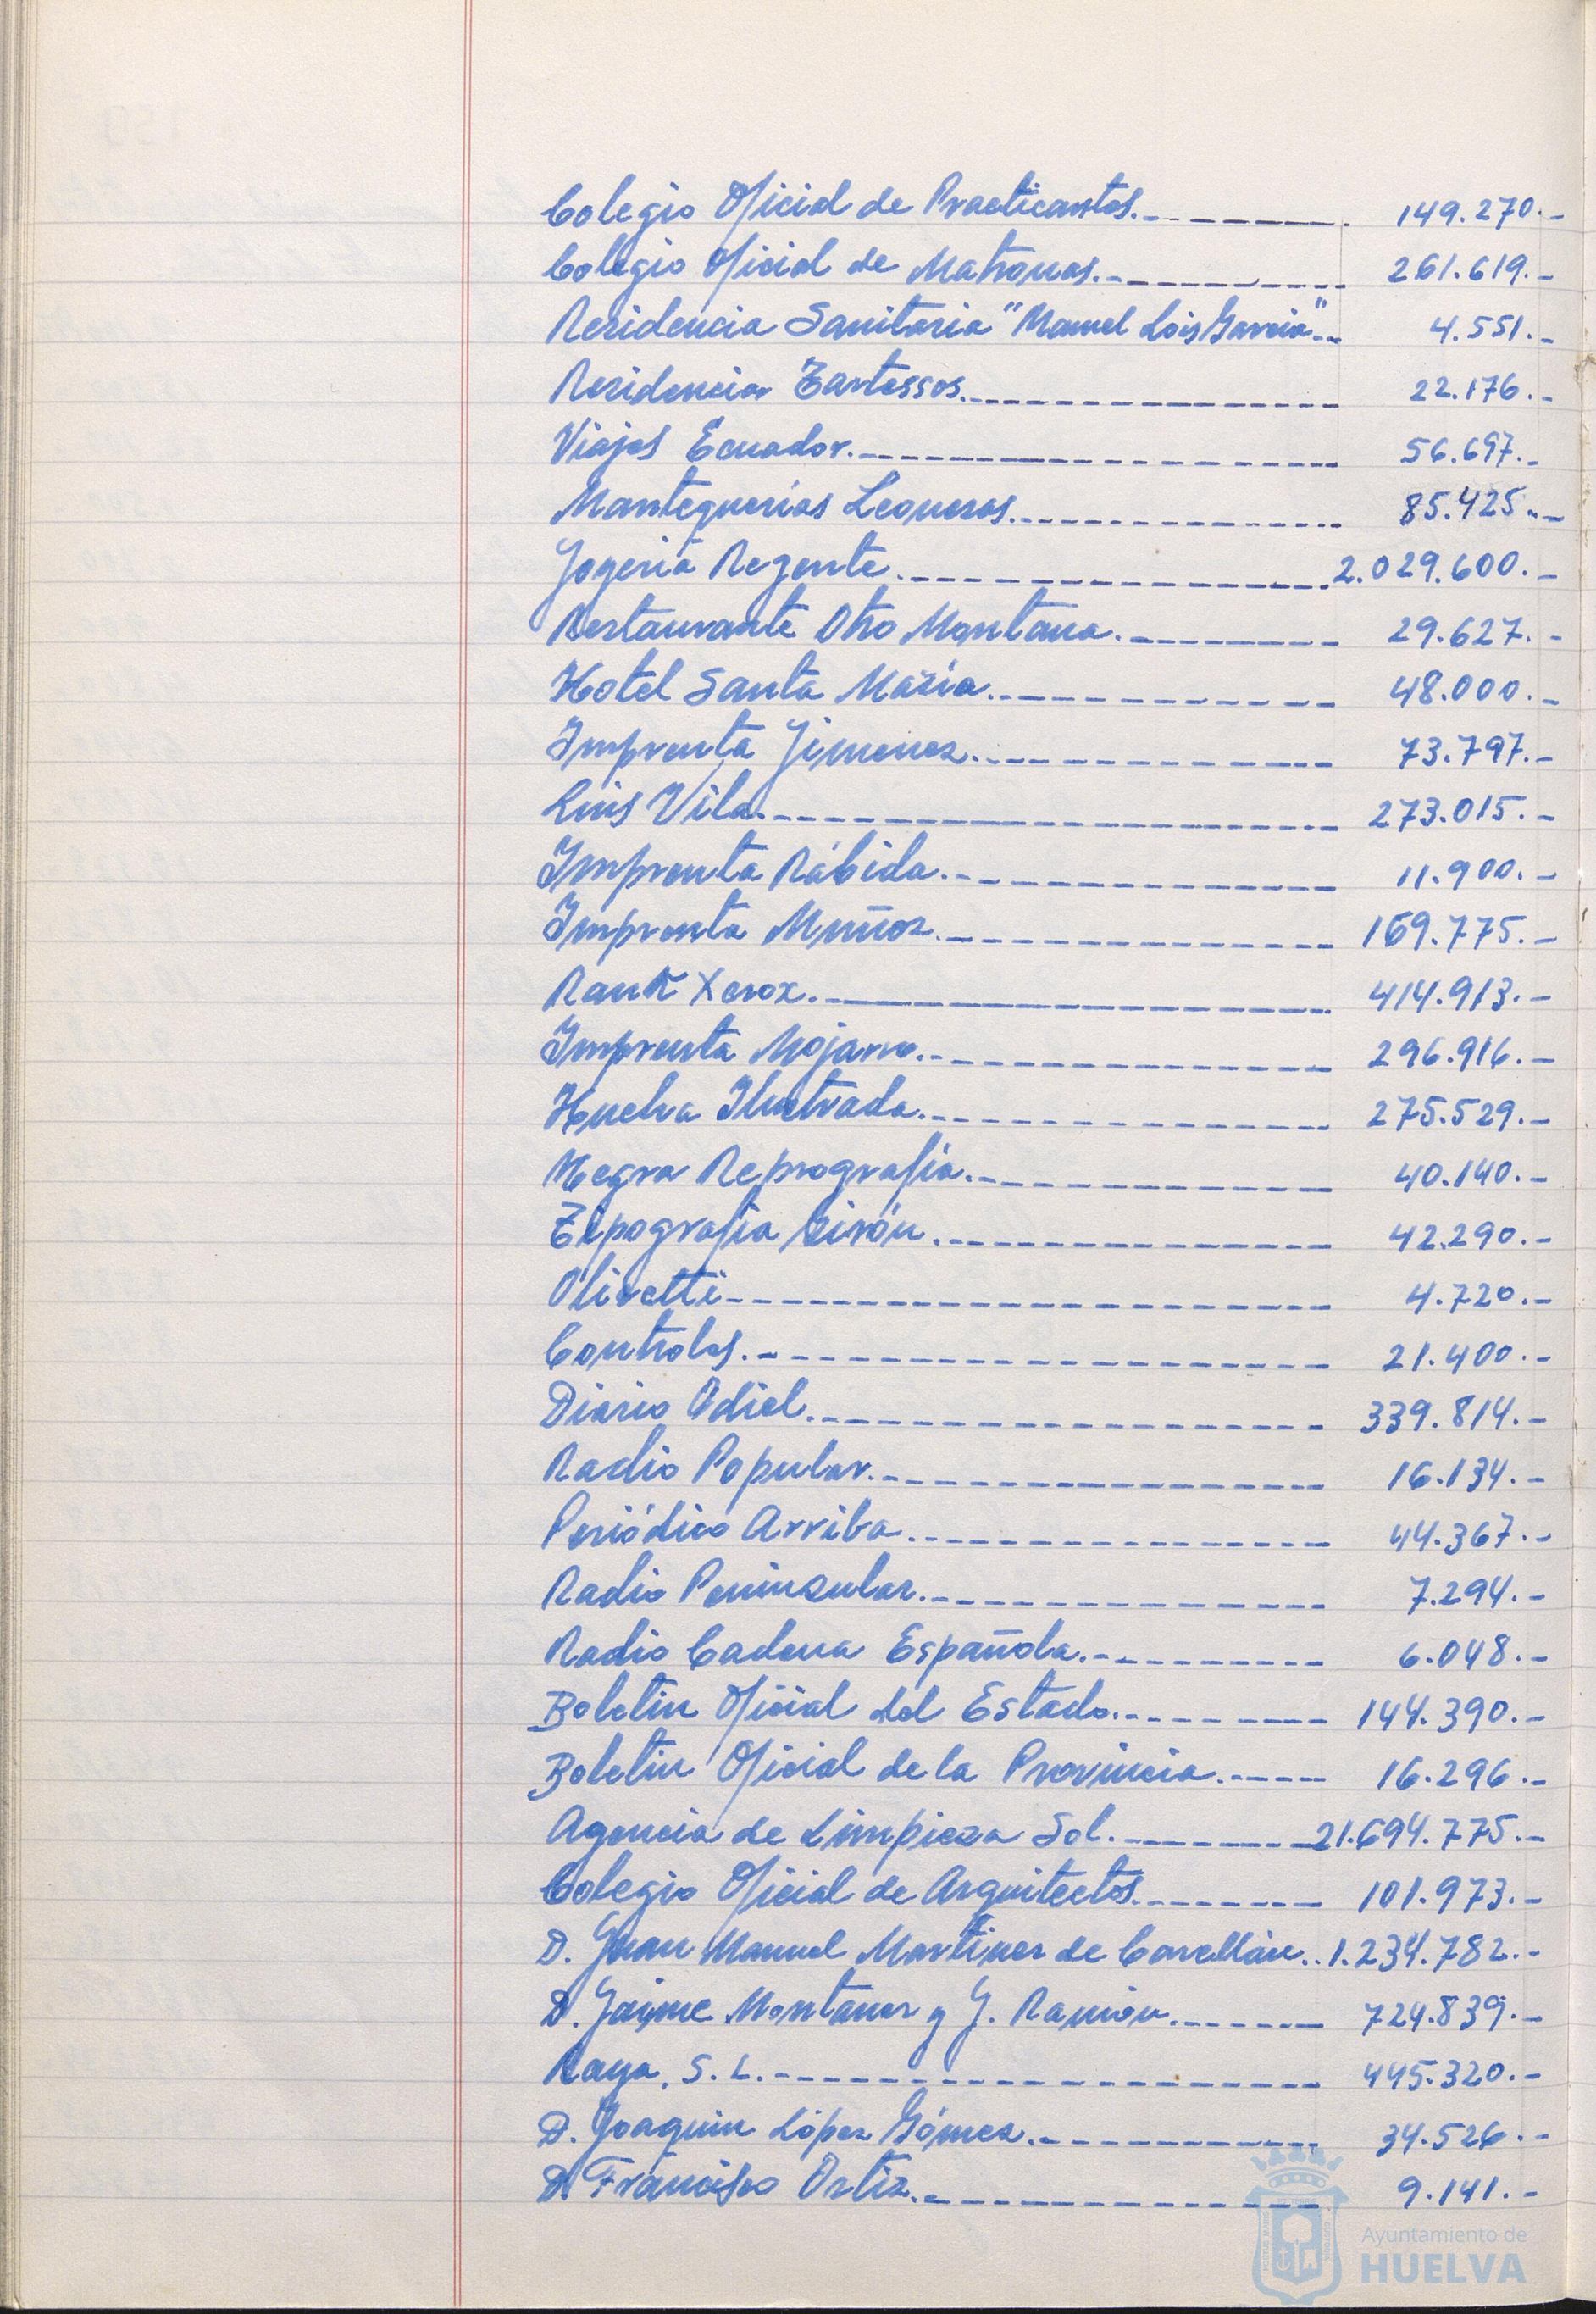 Colegio Oficial de Practicantes.------- 149.270.-
Colegio Oficial de Matronas.---------- 261.619.-
Residencia Sanitaria "Manuel Lois Garcia".- 4.551.-
Residencia Tartessos.---------------- 22.176.-
Viajes Ecuador.------------------- 56.697.-
Mantequerias Leonesas.--------------- 85.425.-
Joyeria Regente.----------------- 2.029.600.-
Restaurante Otto Montana.--------- 29.627.-
Hotel Santa Maria.-------------- 48.000.-
Imprenta Jimenez.--------------- 73.797.-
Luis Vila.--------------------- 273.015.-
Imprenta Rábida.---------------- 11.900.-
Imprenta Muñoz.---------------- 169.775.-
Rank Xerox.------------------- 414.913.-
Imprenta Mojarro.--------------- 296.916.-
Huelva Ilustrada.---------------- 275.529.-
Regra Reprografía.------------- 40.140.-
Tipografia Girón.--------------- 42.290.-
Olivetti--------------------- 4.720.-
Controles.-------------------- 21.400.-
Diario Odiel.------------------ 339.814.-
Radio Popular.---------------- 16.134.-
Periódico Arriba.-------------- 44.367.-
Radio Peninsular.-------------- 7.294.-
Radio Cadena Española.--------- 6.048.-
Boletin Oficial del Estado.-------- 144.390.-
Boletin Oficial de la Provincia.----- 16.296.-
Agencia de Limpieza Sol.------- 21.694.775.-
Colegio Oficial de Arquitectos.------- 101.973.-
D. Juan Manuel Martinez de Carellán.. 1.234.782.-
D. Jaime Montaner y J. Ramión.------ 724.839.-
Raya, S.L.------------------- 445.320.-
D. Joaquin López Gómez.---------- 34.526.-
D. Francisco Ortiz.-------------- 9.141.-
Ayuntamiento de
HUELVA